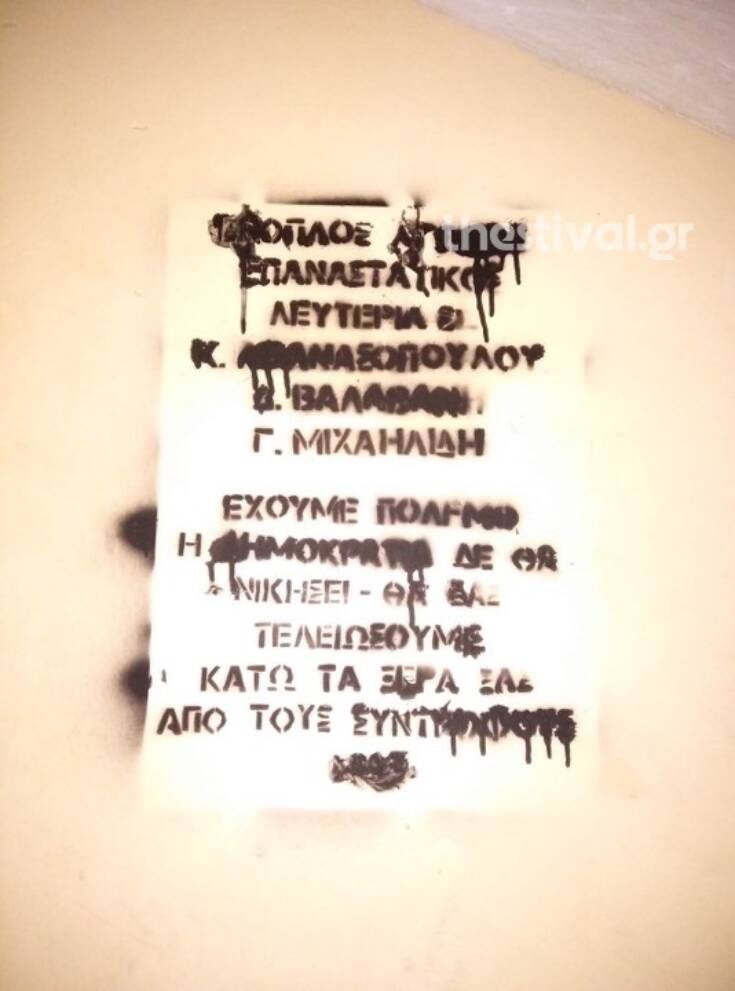 ΕΝΟΠΛΟΣ
thestival.gr
ΕΠΑΝΑΣΤΑΤΙΚΟΣ
ΛΕΥΤΕΡΙΑ
Κ. ΑΘΑΝΑΣΟΠΟΥΛΟΥ
Δ. ΒΑΛΑΒΑΝΗ
Γ. ΜΙΧΑΗΛΙΔΗ
ΕΧΟΥΜΕ ΠΟΛΕΜΟ
Η ΔΗΜΟΚΡΑΤΙΑ ΔΕ ΘΑ
ΝΙΚΗΣΕΙ - ΘΑ ΣΑΣ
ΤΕΛΕΙΩΣΟΥΜΕ
ΚΑΤΩ ΤΑ ΞΕΡΑ ΣΑΣ
ΑΠΟ ΤΟΥΣ ΣΥΝΤΡΟΦΟΥΣ